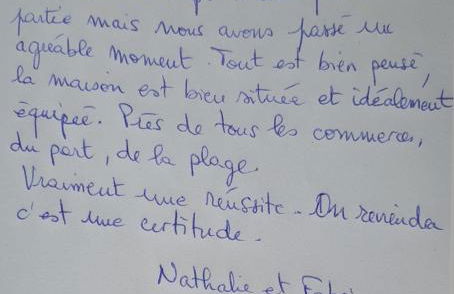 partie mais nous avons passé un
agréable moment. Tout est bien pensé,
la maison est bien située et idéalement
équipée. Près de tous les commerces,
du port, de la plage.
Vraiment une réussite. On reviendra
c'est une certitude.
Nathalie et